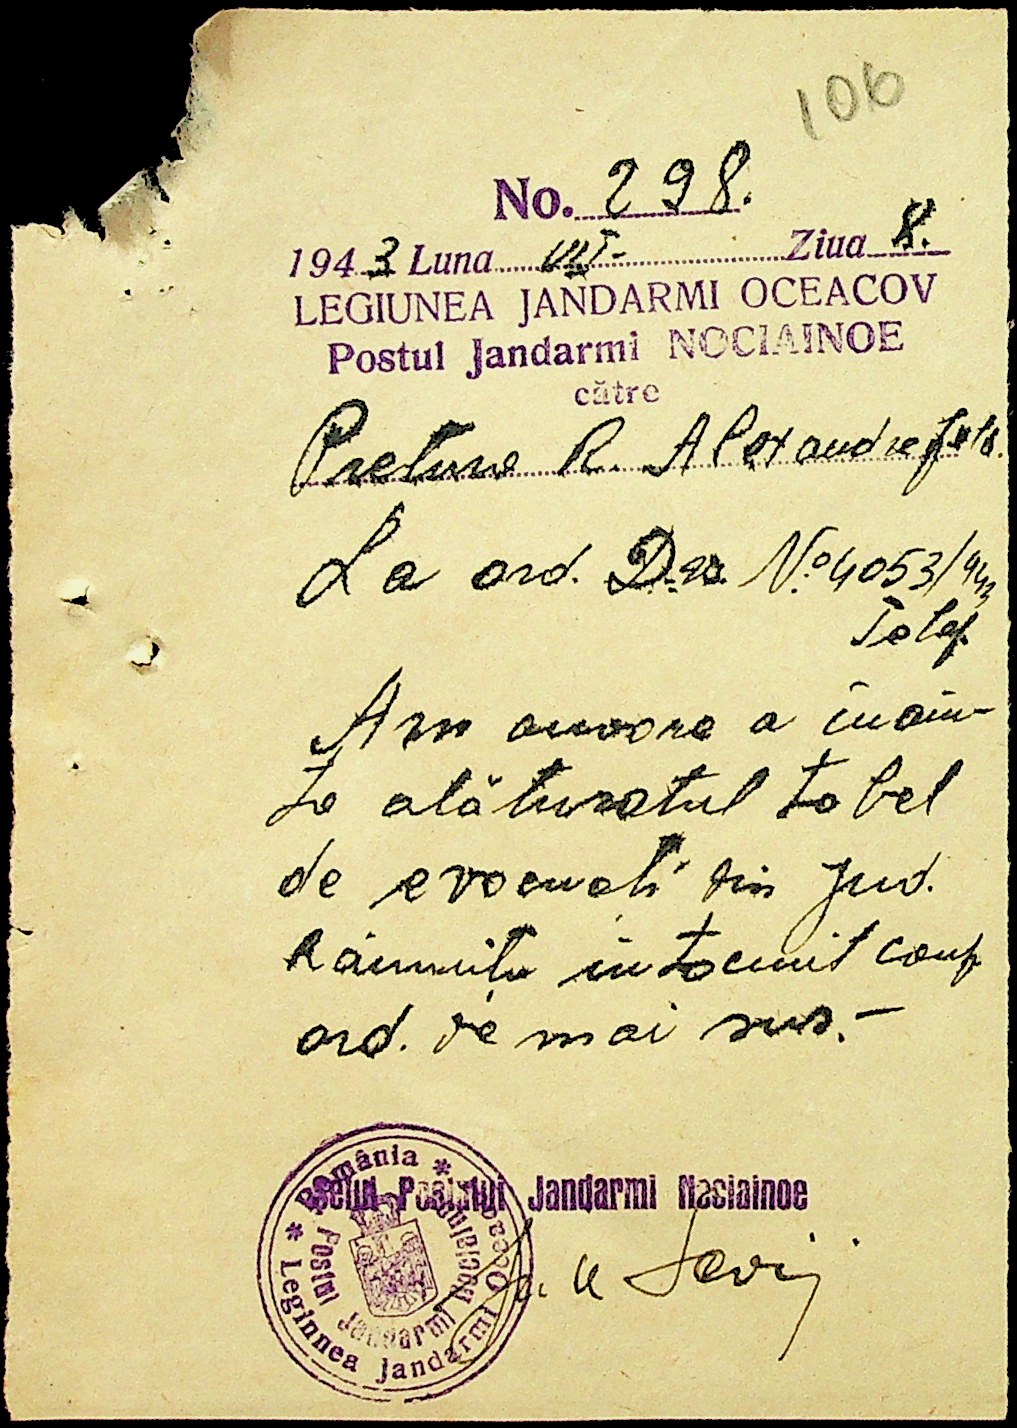 106
No. 298.
1943 Luna VII- Ziua 8.
LEGIUNEA JANDARMI OCEACOV
Postul Jandarmi NOCIAINOE
către
Pretura R. Alexandrefeld.
La ord. Dvs. No. 4053/943
Telef.
Am onoare a înain-
ta alăturatul tabel
de evacuati din Jud.
Râmnitu intocmit conf
ord. de mai sus.-
Șeful Postului Jandarmi Naciainoe
* România *
Leginnea Jandarmi Oceacov
Postul Jandarmi Naciainoe